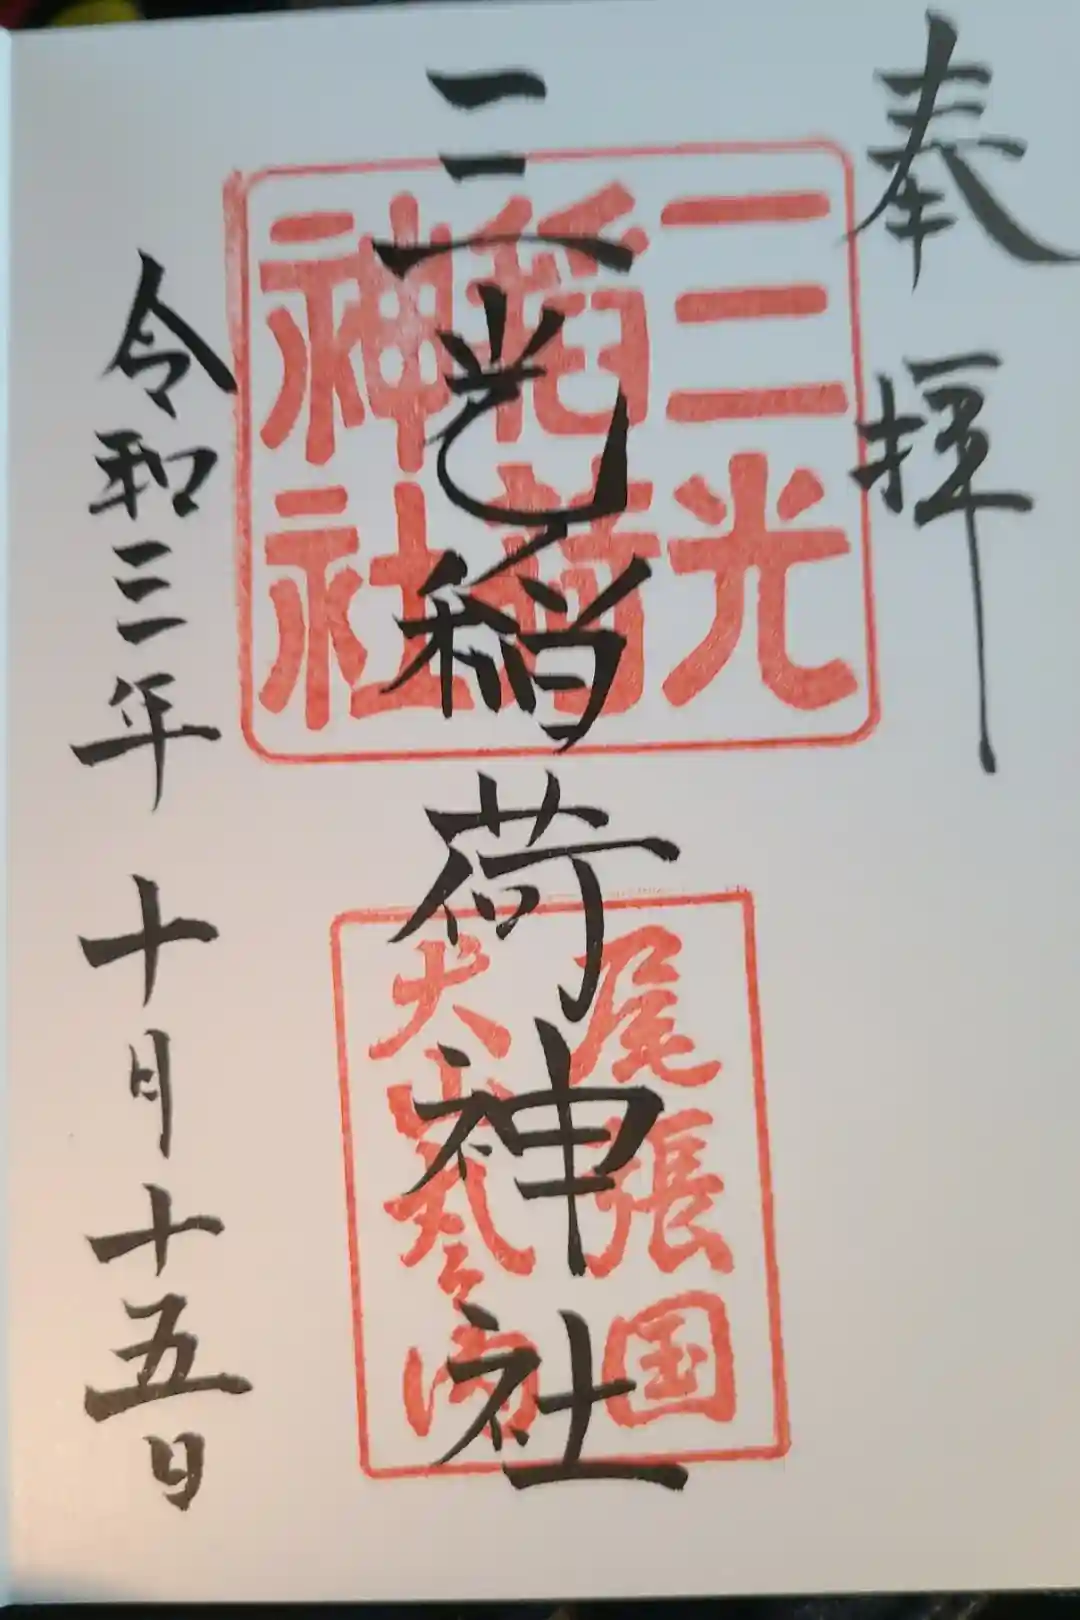 奉拝
三光稲荷神社
令和三年十月十五日
三光
稲荷
神社
尾張国
犬山